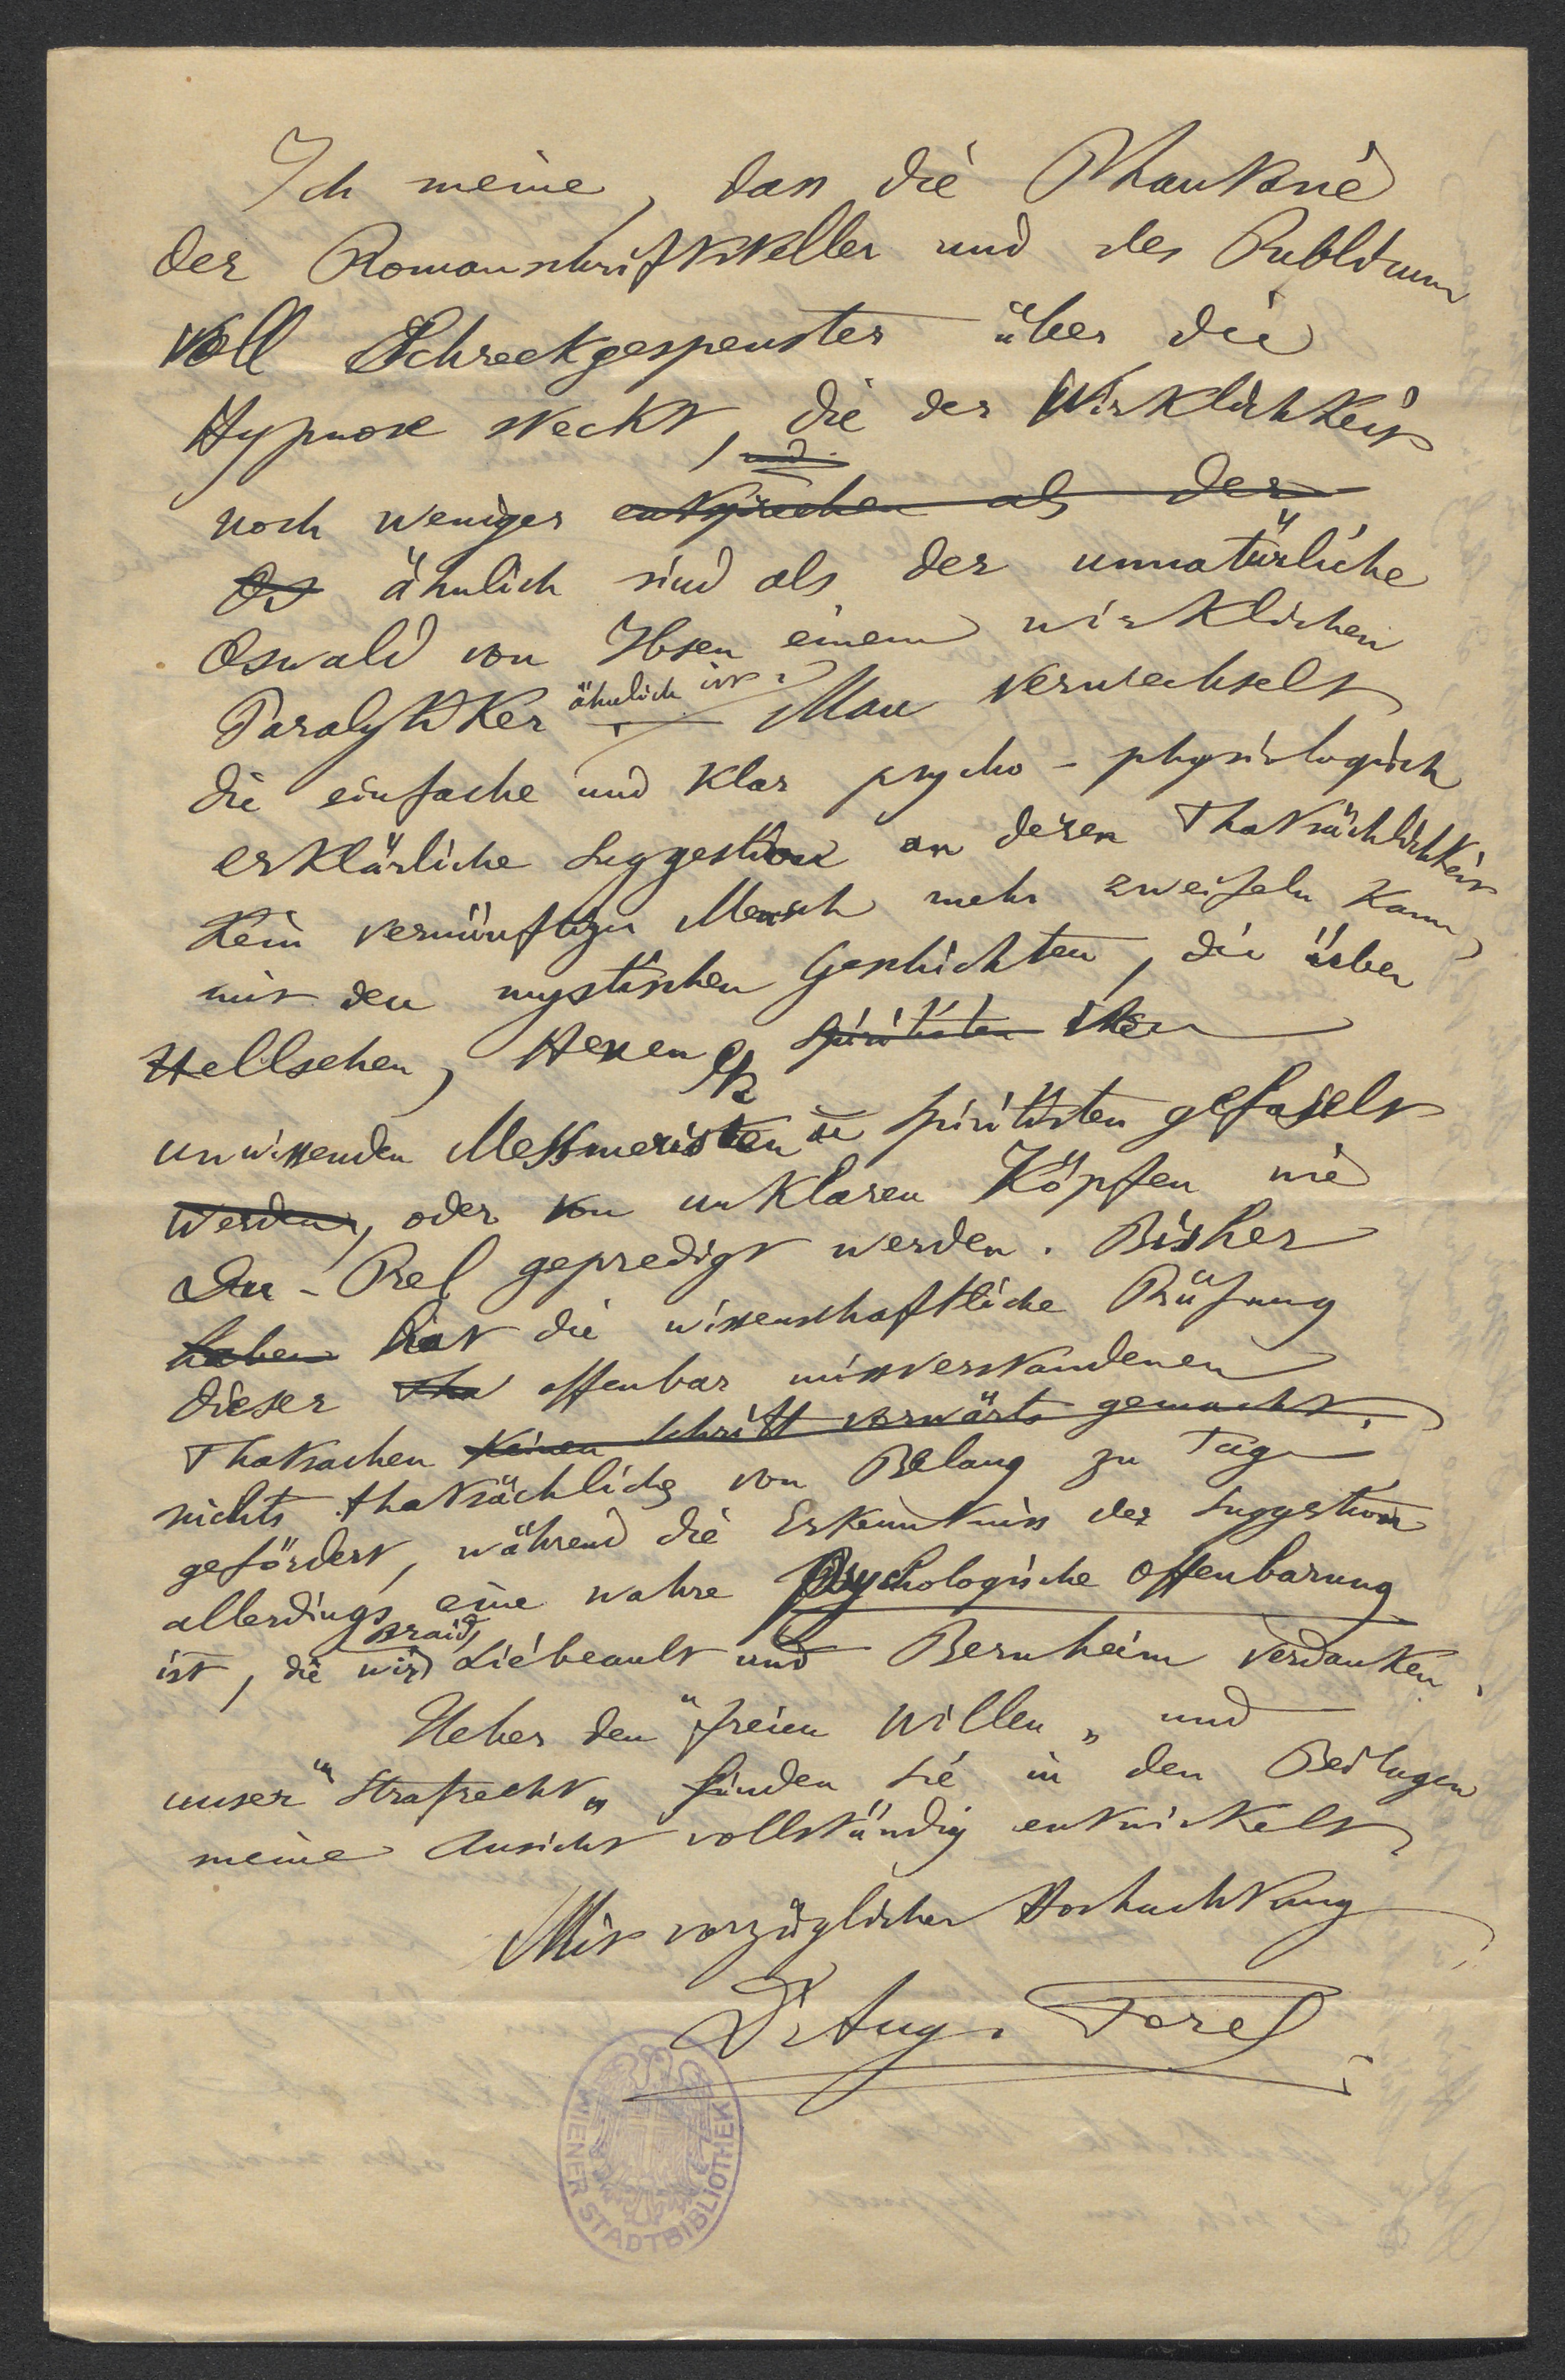 Ich meine, dass die Phantasie
der Romanschriftsteller und des Publikum
voll Schreckgespenster über die
Hypnose steckt, die der Wirklichkeit
und
noch weniger entsprechen als der
Os ähnlich sind als der unnatürliche
Oswald von Ibsen einem wirklichen
Paralytiker ähnlich ist. Man verwechselt
die einfache und klar psycho-physiologisch
erklärliche Suggestion an deren Thatsächlichkeit
kein vernünftiger Mensch mehr zweifeln kann,
mit den mystischen Geschichten, die über
Hellsehen, Hexen etc Spiritisten
unwissenden Messmeristen u Spiritisten gefaselt
werden, oder von unklaren Köpfen wie
Du-Prel gepredigt werden. Bisher
haben hat die wissenschaftliche Prüfung
dieser Tha offenbar missverstandenen
Thatsachen keinen Schritt vorwärts gemacht.
nichts thatsächliches von Belang zu Tage
gefördert, während die Erkenntniss der Suggestion
allerdings eine wahre psychologische Offenbarung
ist, die wir Braid, Liébeault und Bernheim verdanken.
Ueber den "freien Willen" und
unser "Strafrecht" finden Sie in den Beilagen
meine Ansicht vollständig entwickelt.
Mit vorzüglicher Hochachtung
Dr Aug. Forel
WIENER STADTBIBLIOTHEK